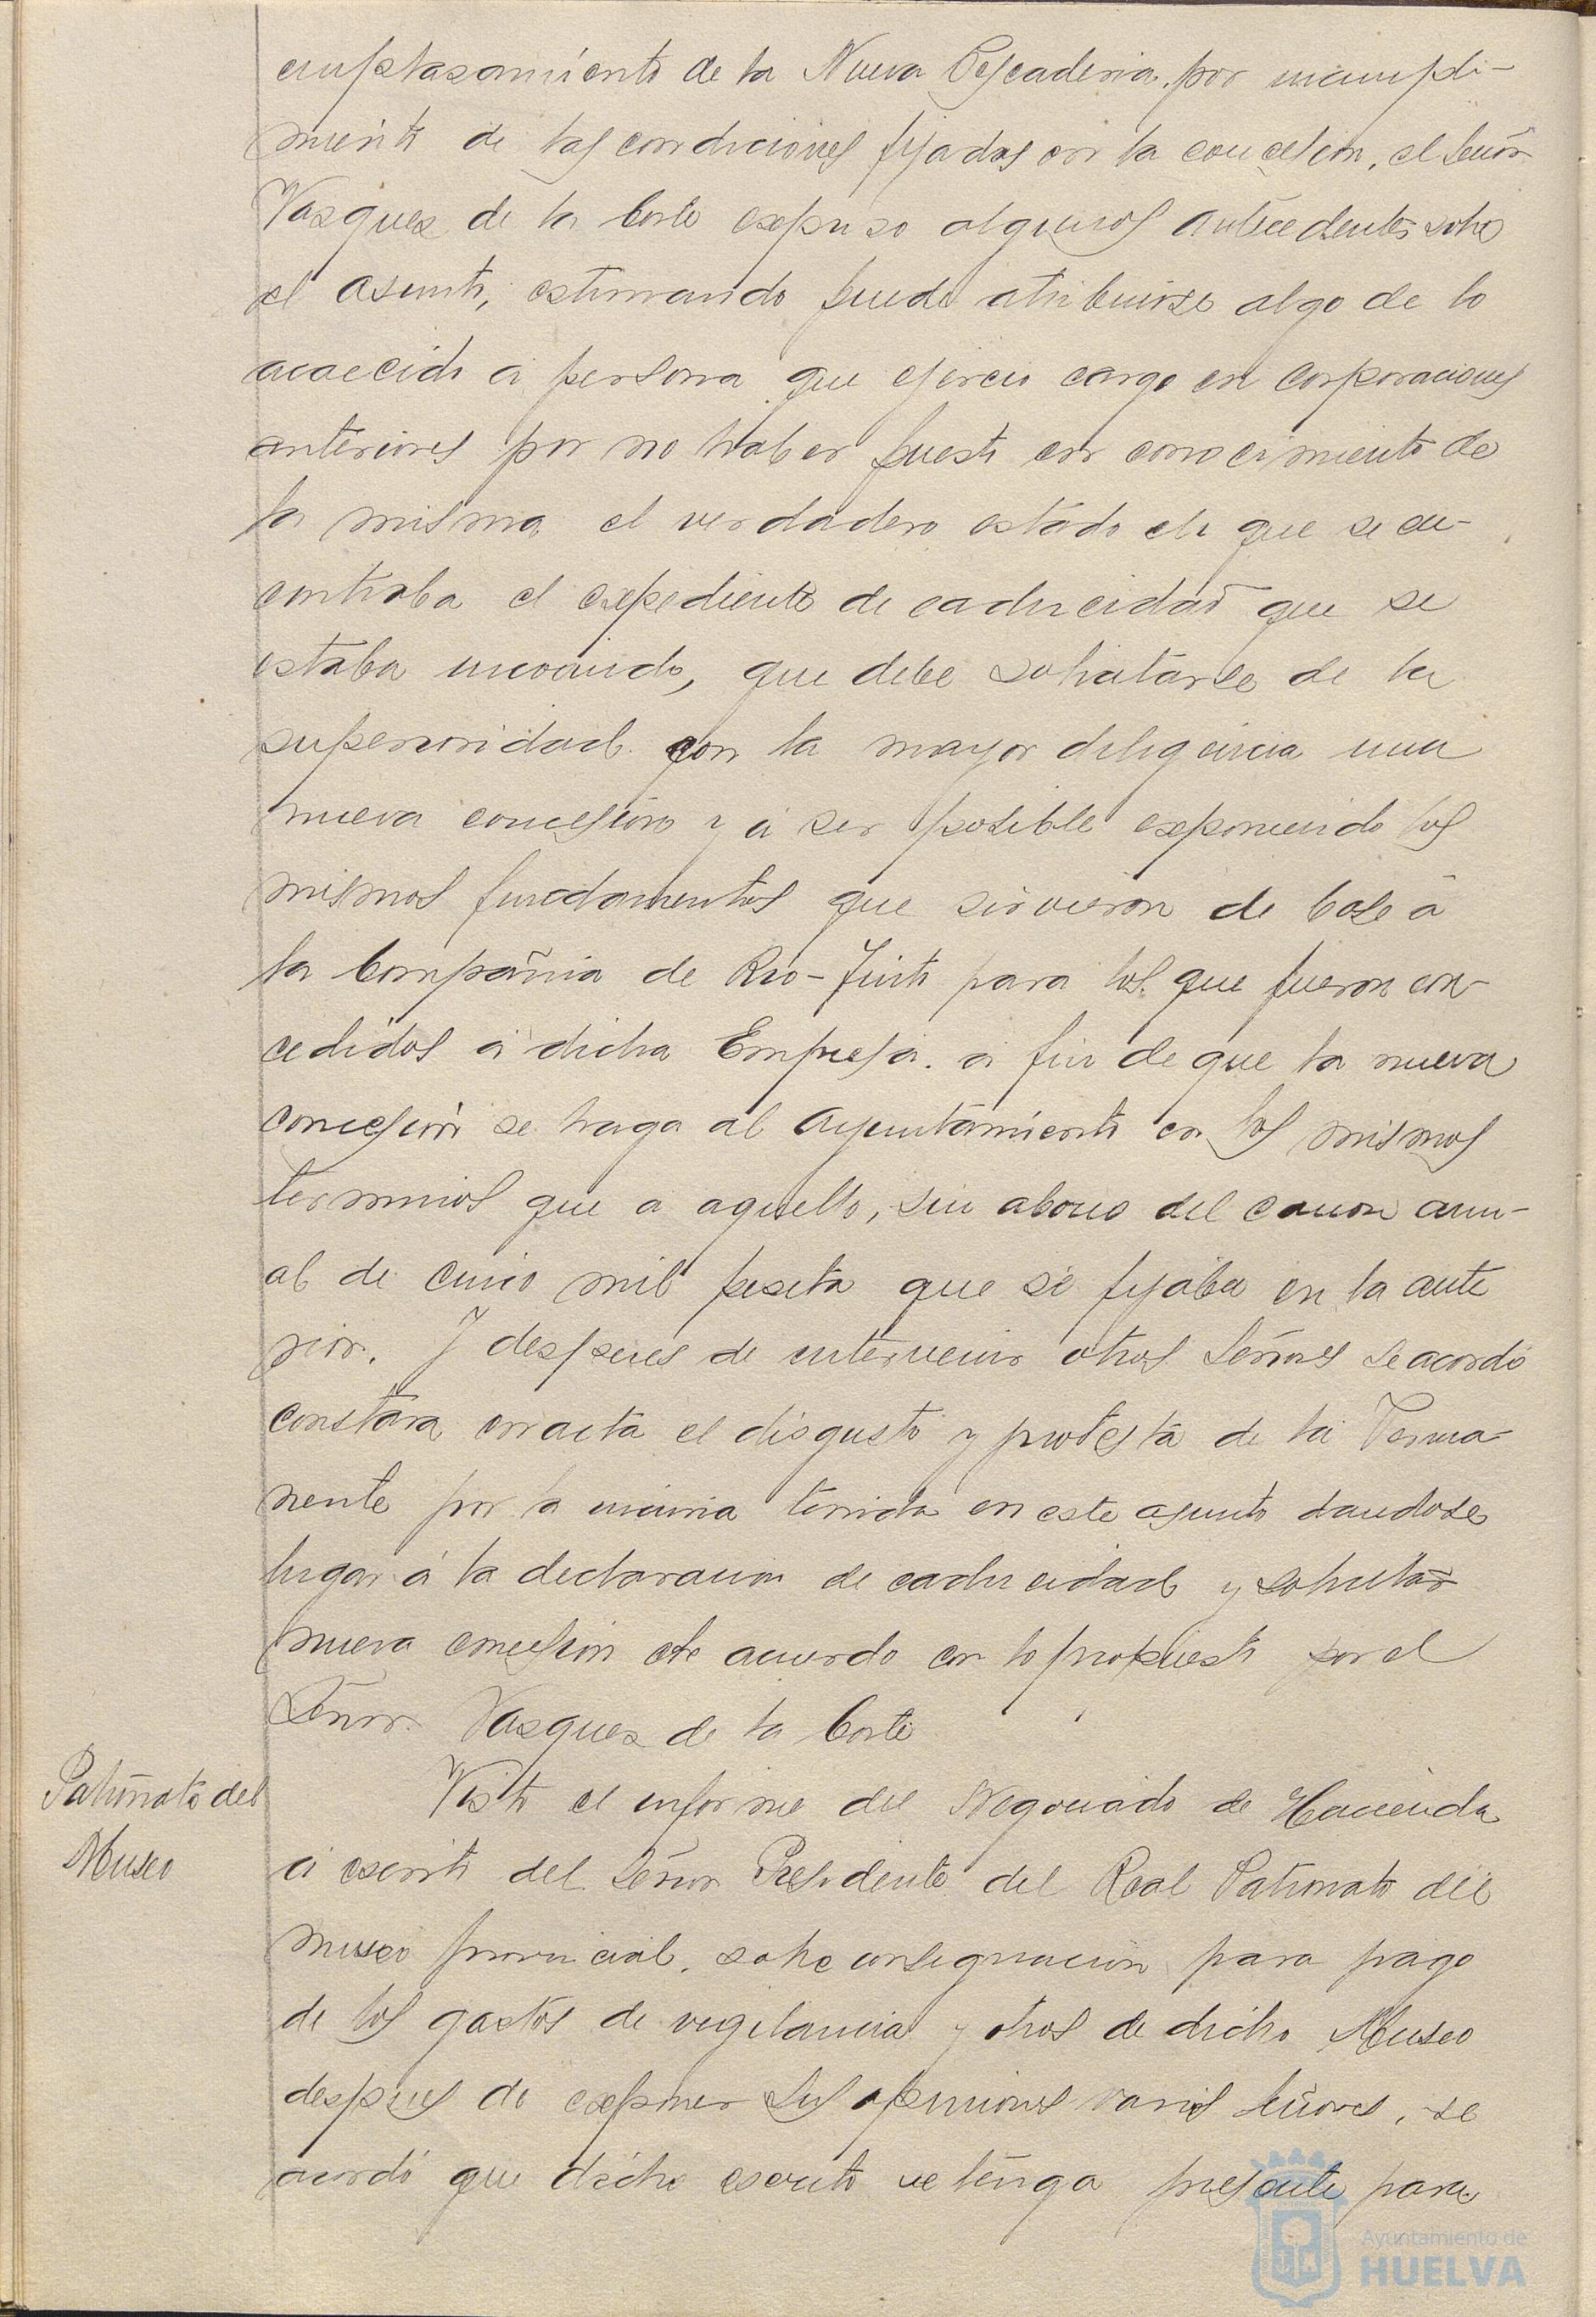 emplasamiento de la Nueva Pescaderia. por incumpli-
miento de las condiciones fijadas en la concesion, el Señor
Vasques de la Corte expuso algunos antecedentes sobre
el asunto, estimando puede atribuirse algo de lo
acaecido á persona que ejercio cargo en corporaciones
anteriores por no haber puesto en conocimiento de
la misma el verdadero estado en que se en-
contraba el expediente de caducidad que se
estaba incoando, que debe solicitarse de la
superioridad con la mayor diligencia una
nueva concesion y á ser posible exponiendo los
mismos fundamentos que sirvieron de base á
la Compañia de Rio-Tinto para los que fueron con-
cedidos á dicha Empresa. á fin de que la nueva
concesión se haga al Ayuntamiento en los mismos
terminos que a aquella, sin abono del canon anu-
al de cinco mil peseta que se fijaba en la ante
rior. Y despues de intervenir otros Señores se acordó
constara en acta el disgusto y protesta de la Perma-
nente por la incuria tenida en este asunto dandose
lugar á la declaracion de caducidad y solicitar
nueva concesion de acuerdo con lo propuesto por el
Señor. Vasques de la Corte
Patronato del
Museo
Visto el informe del Negociado de Hacienda
á escrito del Señor Presidente del Real Patronato del
museo provincial. sobre consignacion para pago
de los gastos de vigilancia y otros de dicho Museo
despues de exponer sus opiniones varios Señores, se
acordó que dicho escrito se tenga presente para
Ayuntamiento de
HUELVA